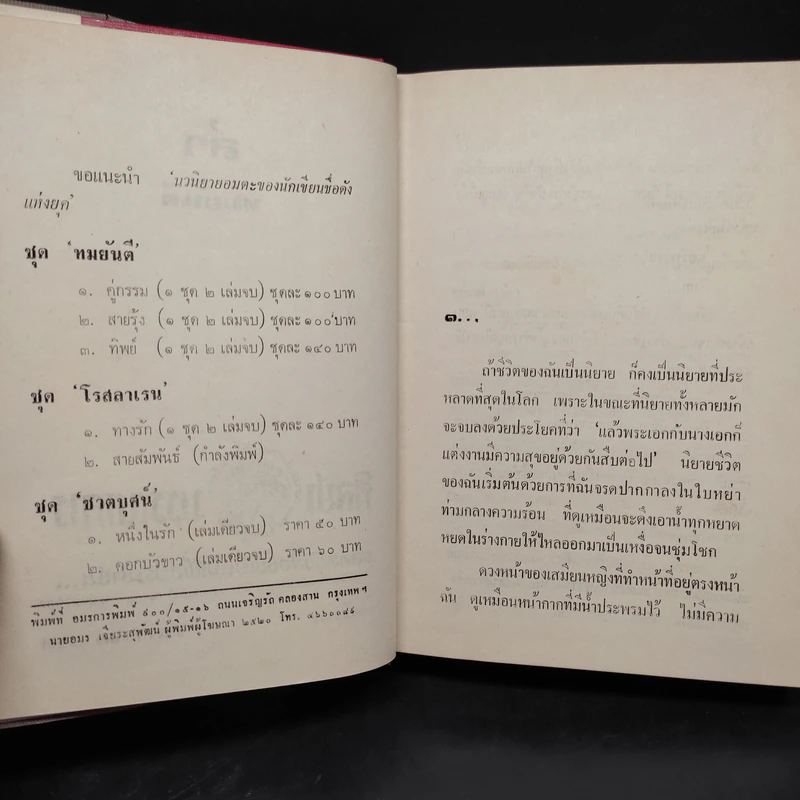 ขอแนะนำ 'นวนิยายอมตะของนักเขียนชื่อดัง
แห่งยุค'
ชุด 'ทมยันตี'
๑. คู่กรรม (๑ ชุด ๒ เล่มจบ) ชุดละ ๑๐๐ บาท
๒. สายรุ้ง (๑ ชุด ๒ เล่มจบ) ชุดละ ๑๐๐ บาท
๓. ทิพย์ (๑ ชุด ๒ เล่มจบ) ชุดละ ๑๔๐ บาท
ชุด 'โรสลาเรน'
๑. ทางรัก (๑ ชุด ๒ เล่มจบ) ชุดละ ๑๔๐ บาท
๒. สายสัมพันธ์ (กำลังพิมพ์)
ชุด 'ชาตบุศน์'
๑. หนึ่งในรัก (เล่มเดียวจบ) ราคา ๕๐ บาท
๒. ดอกบัวขาว (เล่มเดียวจบ) ราคา ๖๐ บาท
พิมพ์ที่ อมรการพิมพ์ ๙๐๐/๑๕-๑๖ ถนนเจริญรัถ คลองสาน กรุงเทพฯ
นายอมร เจียระสุพัฒน์ ผู้พิมพ์ผู้โฆษณา ๒๕๒๐ โทร. ๔๖๖๐๐๘๖
๑...
ถ้าชีวิตของฉันเป็นนิยาย ก็คงเป็นนิยายที่ประ
หลาดที่สุดในโลก เพราะในขณะที่นิยายทั้งหลายมัก
จะจบลงด้วยประโยคที่ว่า 'แล้วพระเอกกับนางเอกก็
แต่งงานมีความสุขอยู่ด้วยกันสืบต่อไป' นิยายชีวิต
ของฉันเริ่มต้นด้วยการที่ฉันจรดปากกาลงในใบหย่า
ท่ามกลางความร้อน ที่ดูเหมือนจะดึงเอาน้ำทุกหยาด
หยดในร่างกายให้ไหลออกมาเป็นเหงื่อจนชุ่มโชก
ดวงหน้าของเสมียนหญิงที่ทำหน้าที่อยู่ตรงหน้า
ฉัน ดูเหมือนหน้ากากที่มีน้ำประพรมไว้ ไม่มีความ